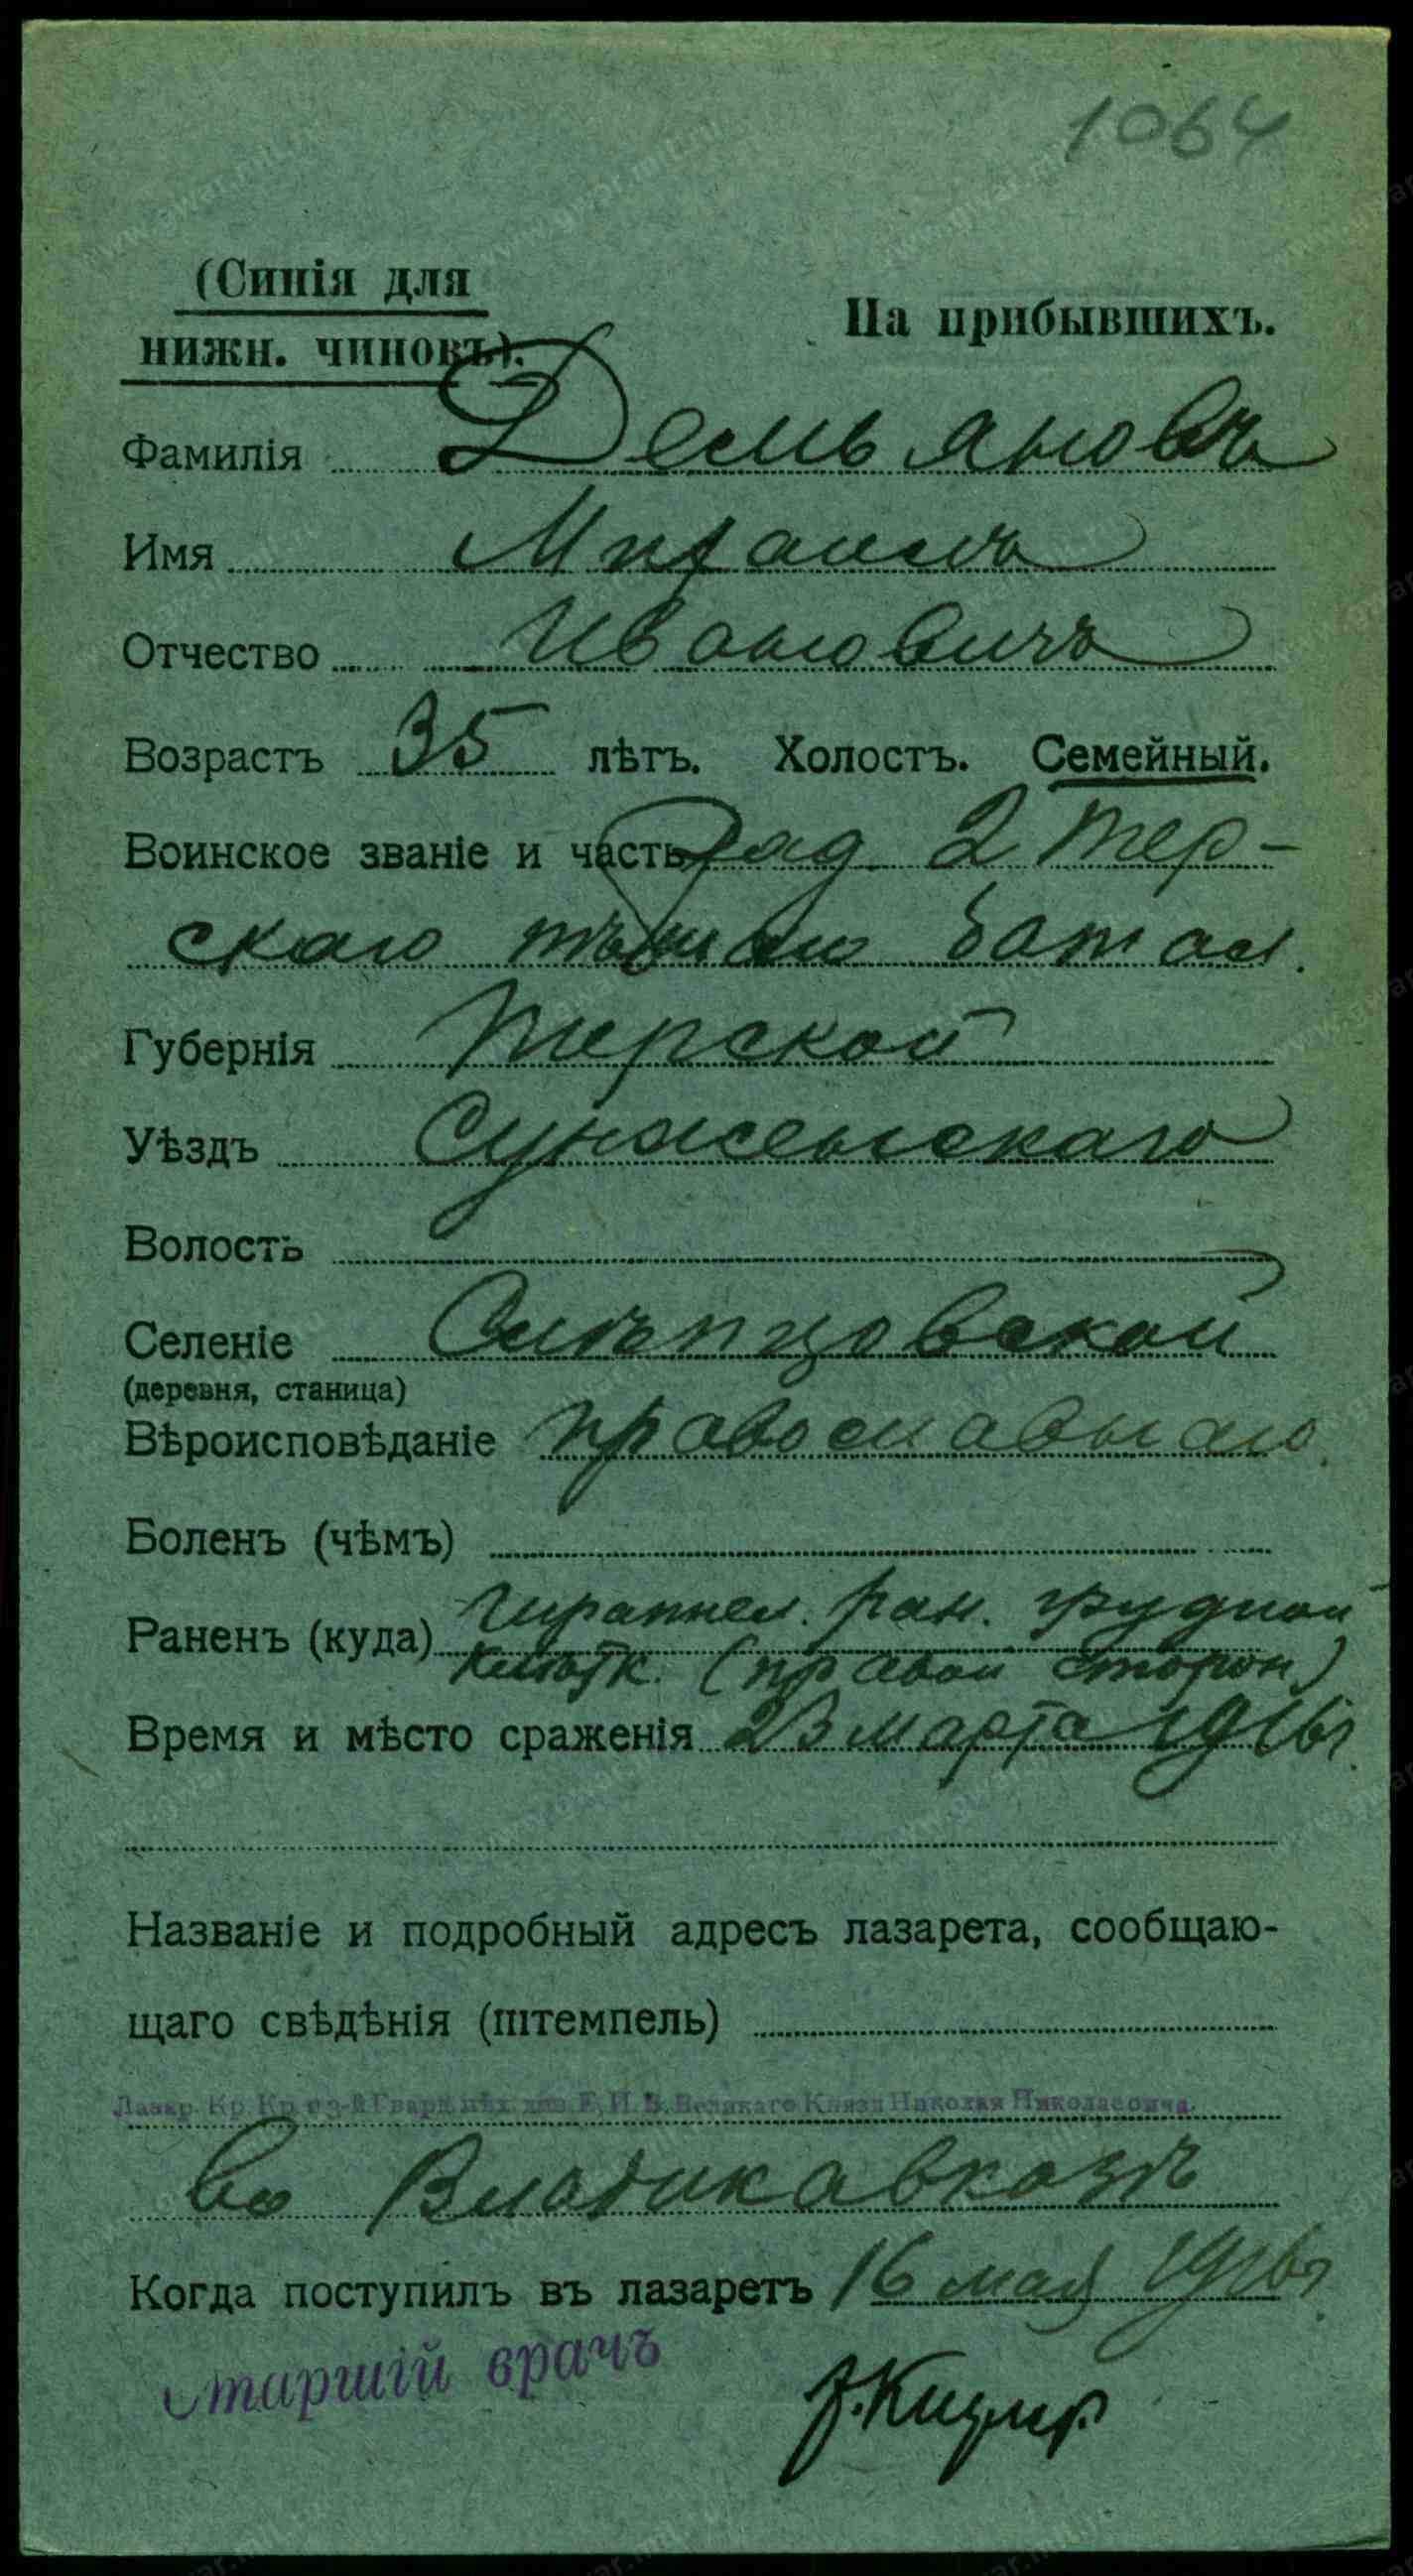 1064
(Синія для
нижн. чиновъ).
На прибывшихъ.
Фамилія Демьяновъ
Имя Михаилъ
Отчество Ивановичъ
Возрастъ 35 лѣтъ. Холостъ. Семейный.
Воинское званіе и часть Ряд. 2 Тер-
скаго батал.
Губернія Терской
Уѣздъ Сунженскаго
Волость
Селеніе Слѣпцовской
(деревня, станица)
Вѣроисповѣданіе православнаго
Боленъ (чѣмъ)
Раненъ (куда) Шрапнел. ран. грудной
клѣтк. (правой сторон)
Время и мѣсто сраженія 23 марта 1916 г.
Названіе и подробный адресъ лазарета, сообщаю-
щаго свѣдѣнія (штемпель)
Лазар. Кр. Кр. 3-й Гвард. пѣх. див. Е. И. В. Великаго Князя Николая Николаевича.
во Владикавказѣ
Когда поступилъ въ лазаретъ 16 мая 1916 г.
Старшій врачъ